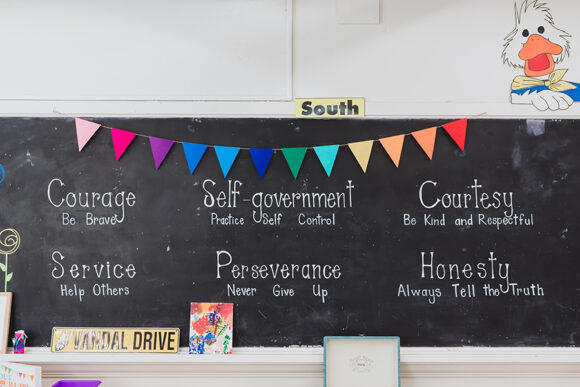 South
Courage
Be Brave
Self-government
Practice Self Control
Courtesy
Be Kind and Respectful
Service
Help Others
Perseverance
Never Give Up
Honesty
Always Tell the Truth
VANDAL DRIVE